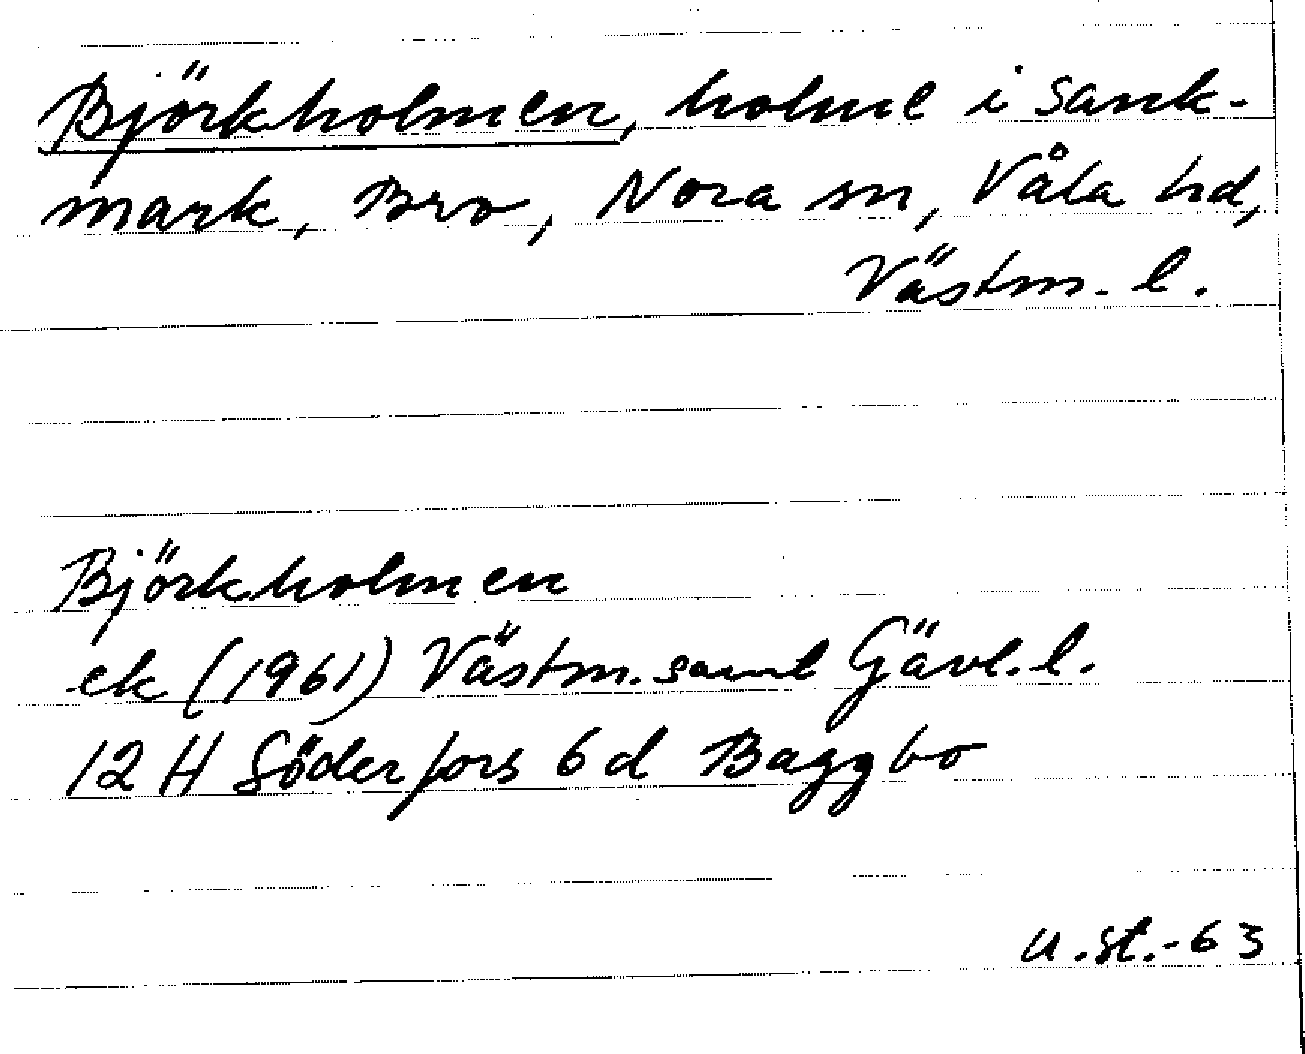 Björkholmen, holme i sank-
mark, Bro, Nora sn, Våla hd,
Västm. l.
Björkholmen
ek (1961) Västm. samt Gävl. l.
12 H Söderfors 6 d Baggbo
U. St. - 63